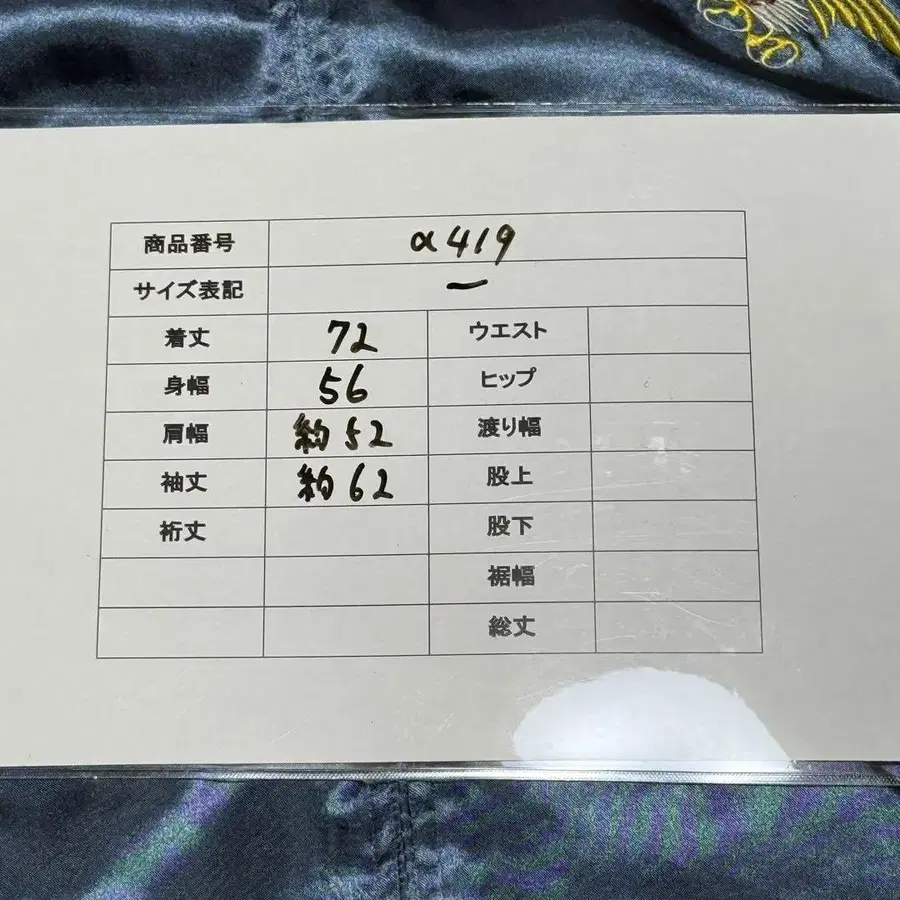 商品番号 α419
サイズ表記 ー
着丈 72 ウエスト
身幅 56 ヒップ
肩幅 約52 渡り幅
袖丈 約62 股上
裄丈 股下
裾幅
総丈